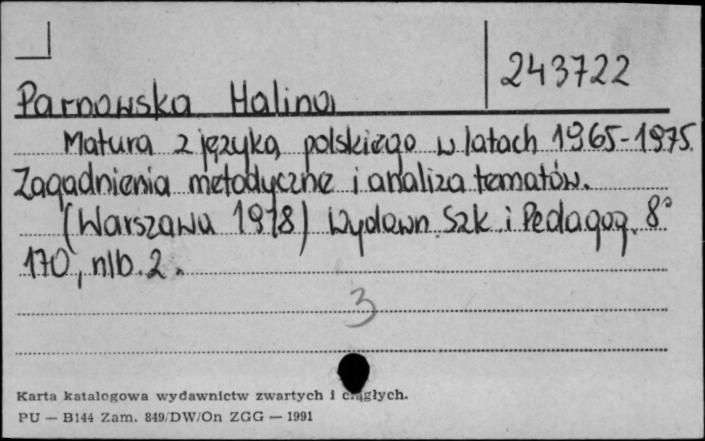 243722
Parnowska Halina
Matura z języka polskiego w latach 1965-1975.
Zagadnienia metodyczne i analiza tematów.
(Warszawa 1978) Wydawn. Szk. i Pedagog. 8°
170, nlb. 2.
3
Karta katalogowa wydawnictw zwartych i ciągłych.
PU — B144 Zam. 849/DW/On ZGG — 1991